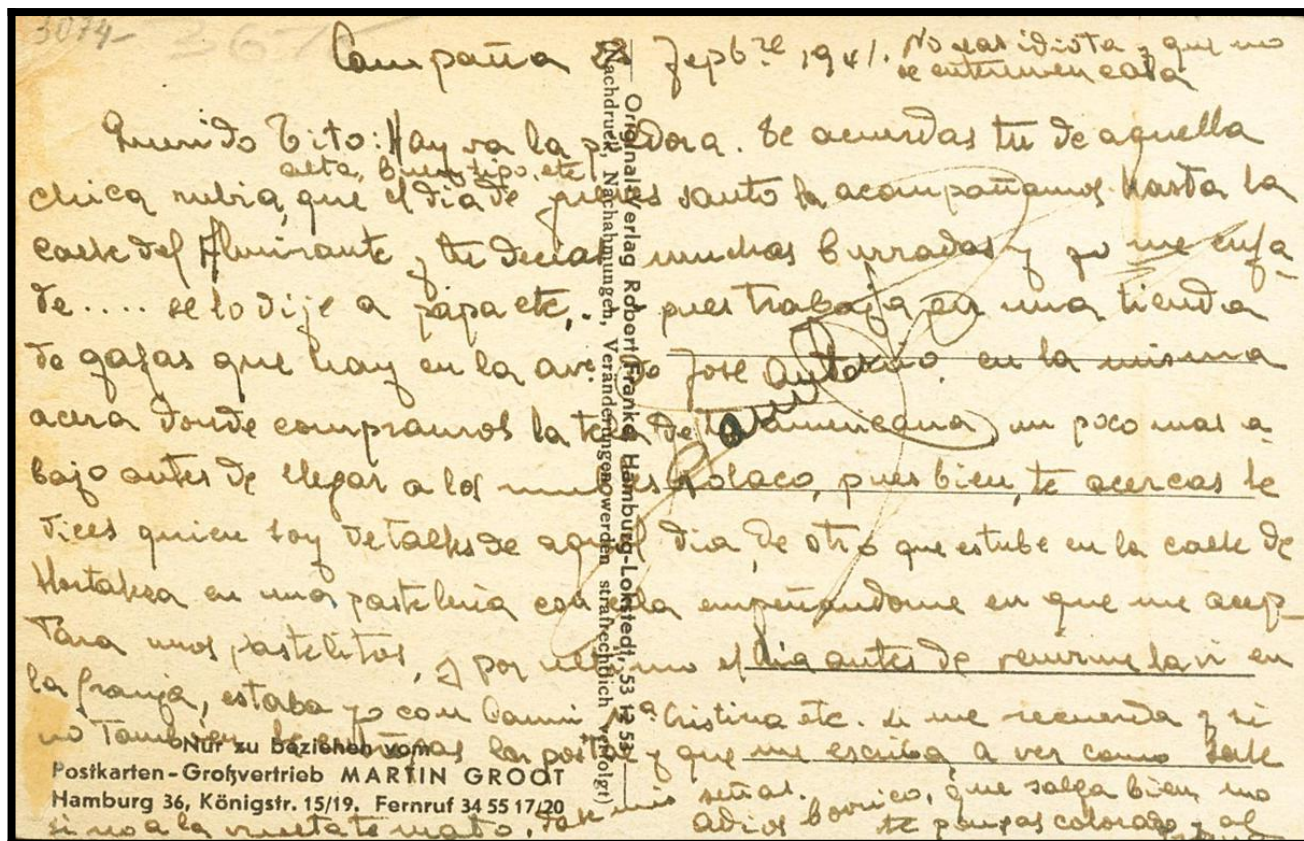 3074-
367
Campaña 28 Sepbre 1941. No seas idiota y que no
se enteren en casa
Querido Tito: Hay va la p dora. Te acuerdas tu de aquella
alta, buen tipo, etc
chica rubia, que el dia de jueves santo la acompañamos hasta la
calle del Almirante y tu decias muchas burradas y yo me enfa-
de.... se lo dije a papa etc,. pues trabaja en una tienda
de gafas que hay en la ave. de Jose Antonio. en la misma
acera donde compramos la tela de la americana, un poco mas a-
bajo antes de llegar a los Polaco, pues bien, te acercas le
dices quien soy detalles de aquel dia, de otro que estube en la calle de
Hortalesa en una pasteleria con ella empeñandome en que me acep-
tara unos pastelitos, y por ultimo el dia antes de venirme la vi en
la granja, estaba yo con Cristina etc. si me recuerda y si
no tambien le entregas la postal y que me escriba a ver como sale
señas. Adios borrico, que salga bien, no
si no a la vuelta te mato, te pongas colorado y al
Original-Verlag Robert Franke, Hamburg-Lokstedt, 53 12 53
(Nachdruck, Nachahmungen, Veränderungen werden strafrechtlich verfolgt)
Nur zu beziehen vom
Postkarten-Großvertrieb MARTIN GROOT
Hamburg 36, Königstr. 15/19. Fernruf 34 55 17/20